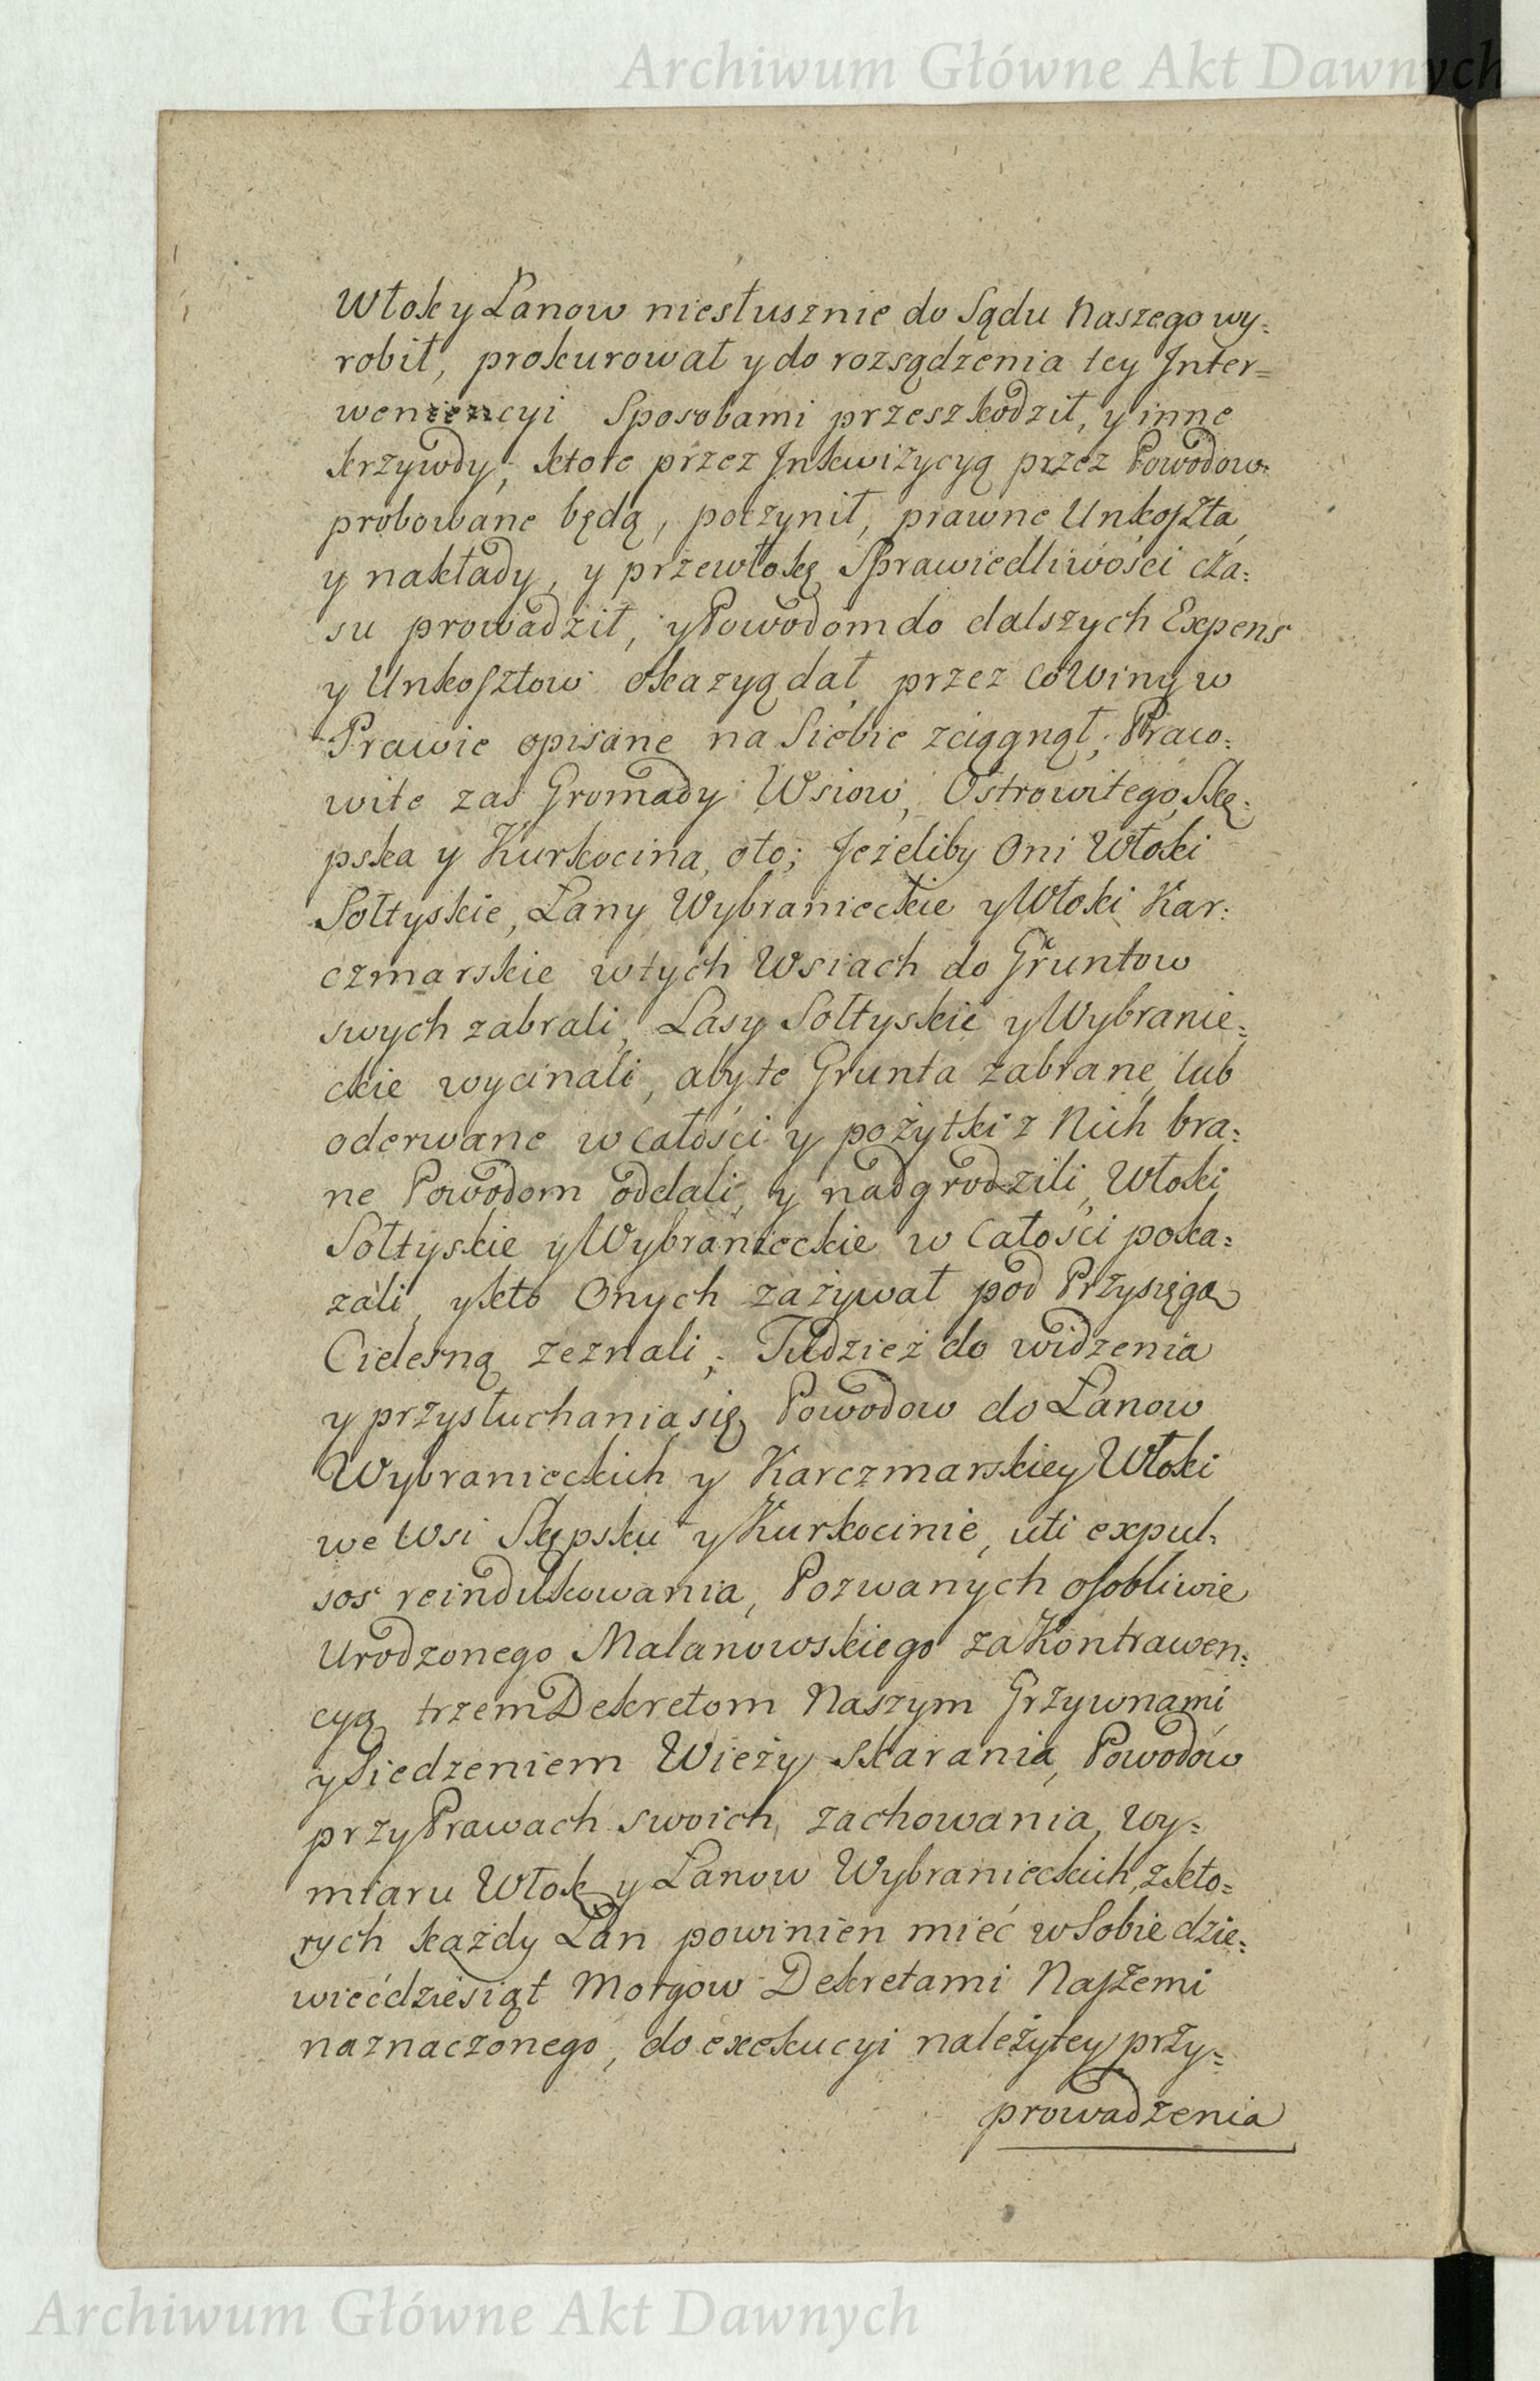 Archiwum Główne Akt Dawnych
Włok y Łanow niesłusznie do Sądu Naszego wy=
robił, prokurował y do rozsądzenia tey Inter=
weniencyi Sposobami przeszkodził, y inne
krzywdy, ktore przez Inkwizycyą przez Powodow
probowane będą, poczynił, prawne Unkoszta
y nakłady, y przewłokę Sprawiedliwości cza=
su prowadził, y Powodom do dalszych Expens
y Unkosztow okazyą dał przez co Winy w
Prawie opisane na Siebie zciągnął; Praco=
wite zaś Gromady Wsiow, Ostrowitego, Skę=
pska y Kurkocina, oto; Jeżeliby Oni Włoki
Sołtyskie, Łany Wybranieckie y Włoki Kar=
czmarskie w tych Wsiach do Gruntow
swych zabrali, Lasy Sołtyskie y Wybranie=
ckie wycinali, aby te Grunta zabrane lub
oderwane w całości y pożytki z Nich bra=
ne Powodom oddali, y nadgrodzili, Włoki
Sołtyskie y Wybranieckie w Całości poka=
zali, y kto Onych zażywał pod Przysięgą
Cielesną zeznali; Tudzież do widzenia
y przysłuchania się Powodow do Łanow
Wybranieckich y Karczmarskiey Włoki
we Wsi Skępsku y Kurkocinie, uti expul=
sos reindukowania, Pozwanych osobliwie
Urodzonego Malanowskiego za Kontrawen=
cyą trzem Dekretom Naszym Grzywnami
y Siedzeniem Wieży Skarania, Powodow
przy Prawach swoich zachowania, wy=
miaru Włok y Łanow Wybranieckich, z kto=
rych każdy Łan powinien mieć w Sobie dzie=
więćdziesiąt Morgow Dekretami Naszemi
naznaczonego, do exekucyi należytey przy=
prowadzenia
Archiwum Główne Akt Dawnych